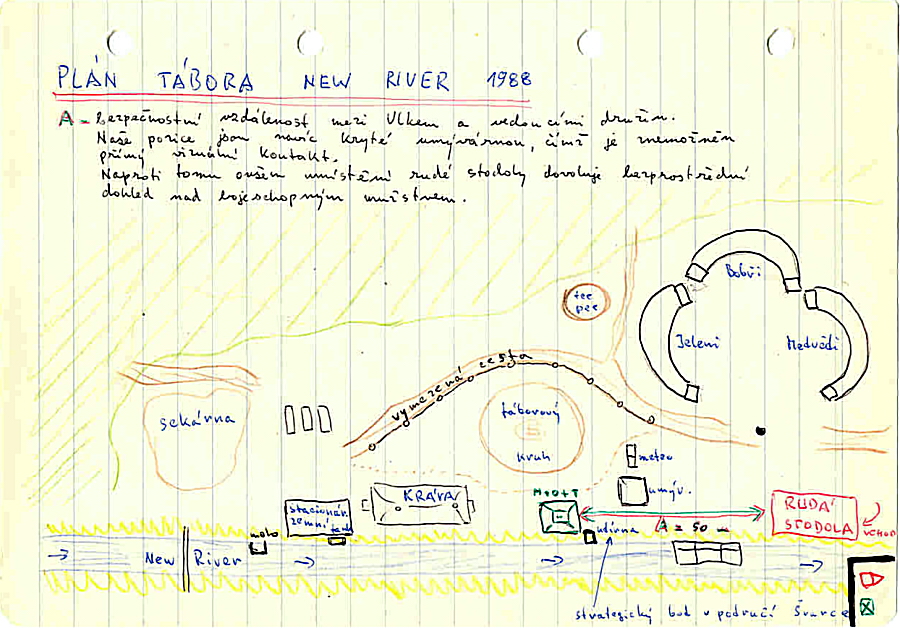 PLÁN TÁBORA NEW RIVER 1988
A - bezpečnostní vzdálenost mezi Vlkem a vedoucími družin.
Naše pozice jsou navíc kryté umývárnou, čímž je znemožněn
přímý vizuální kontakt.
Naproti tomu ovšem umístění rudé stodoly dovoluje bezprostřední
dohled nad bojeschopným mužstvem.
Bobři
tee
pee
Jeleni
Medvědi
vymezená cesta
sekárna
táborový
kruh
meteo
KRÁVA
umýv.
M+O+T
stacionár.
zemní
RUDÁ
STODOLA
VCHOD
A = 50 m
molo
New River
strategický bod v područí Švarce